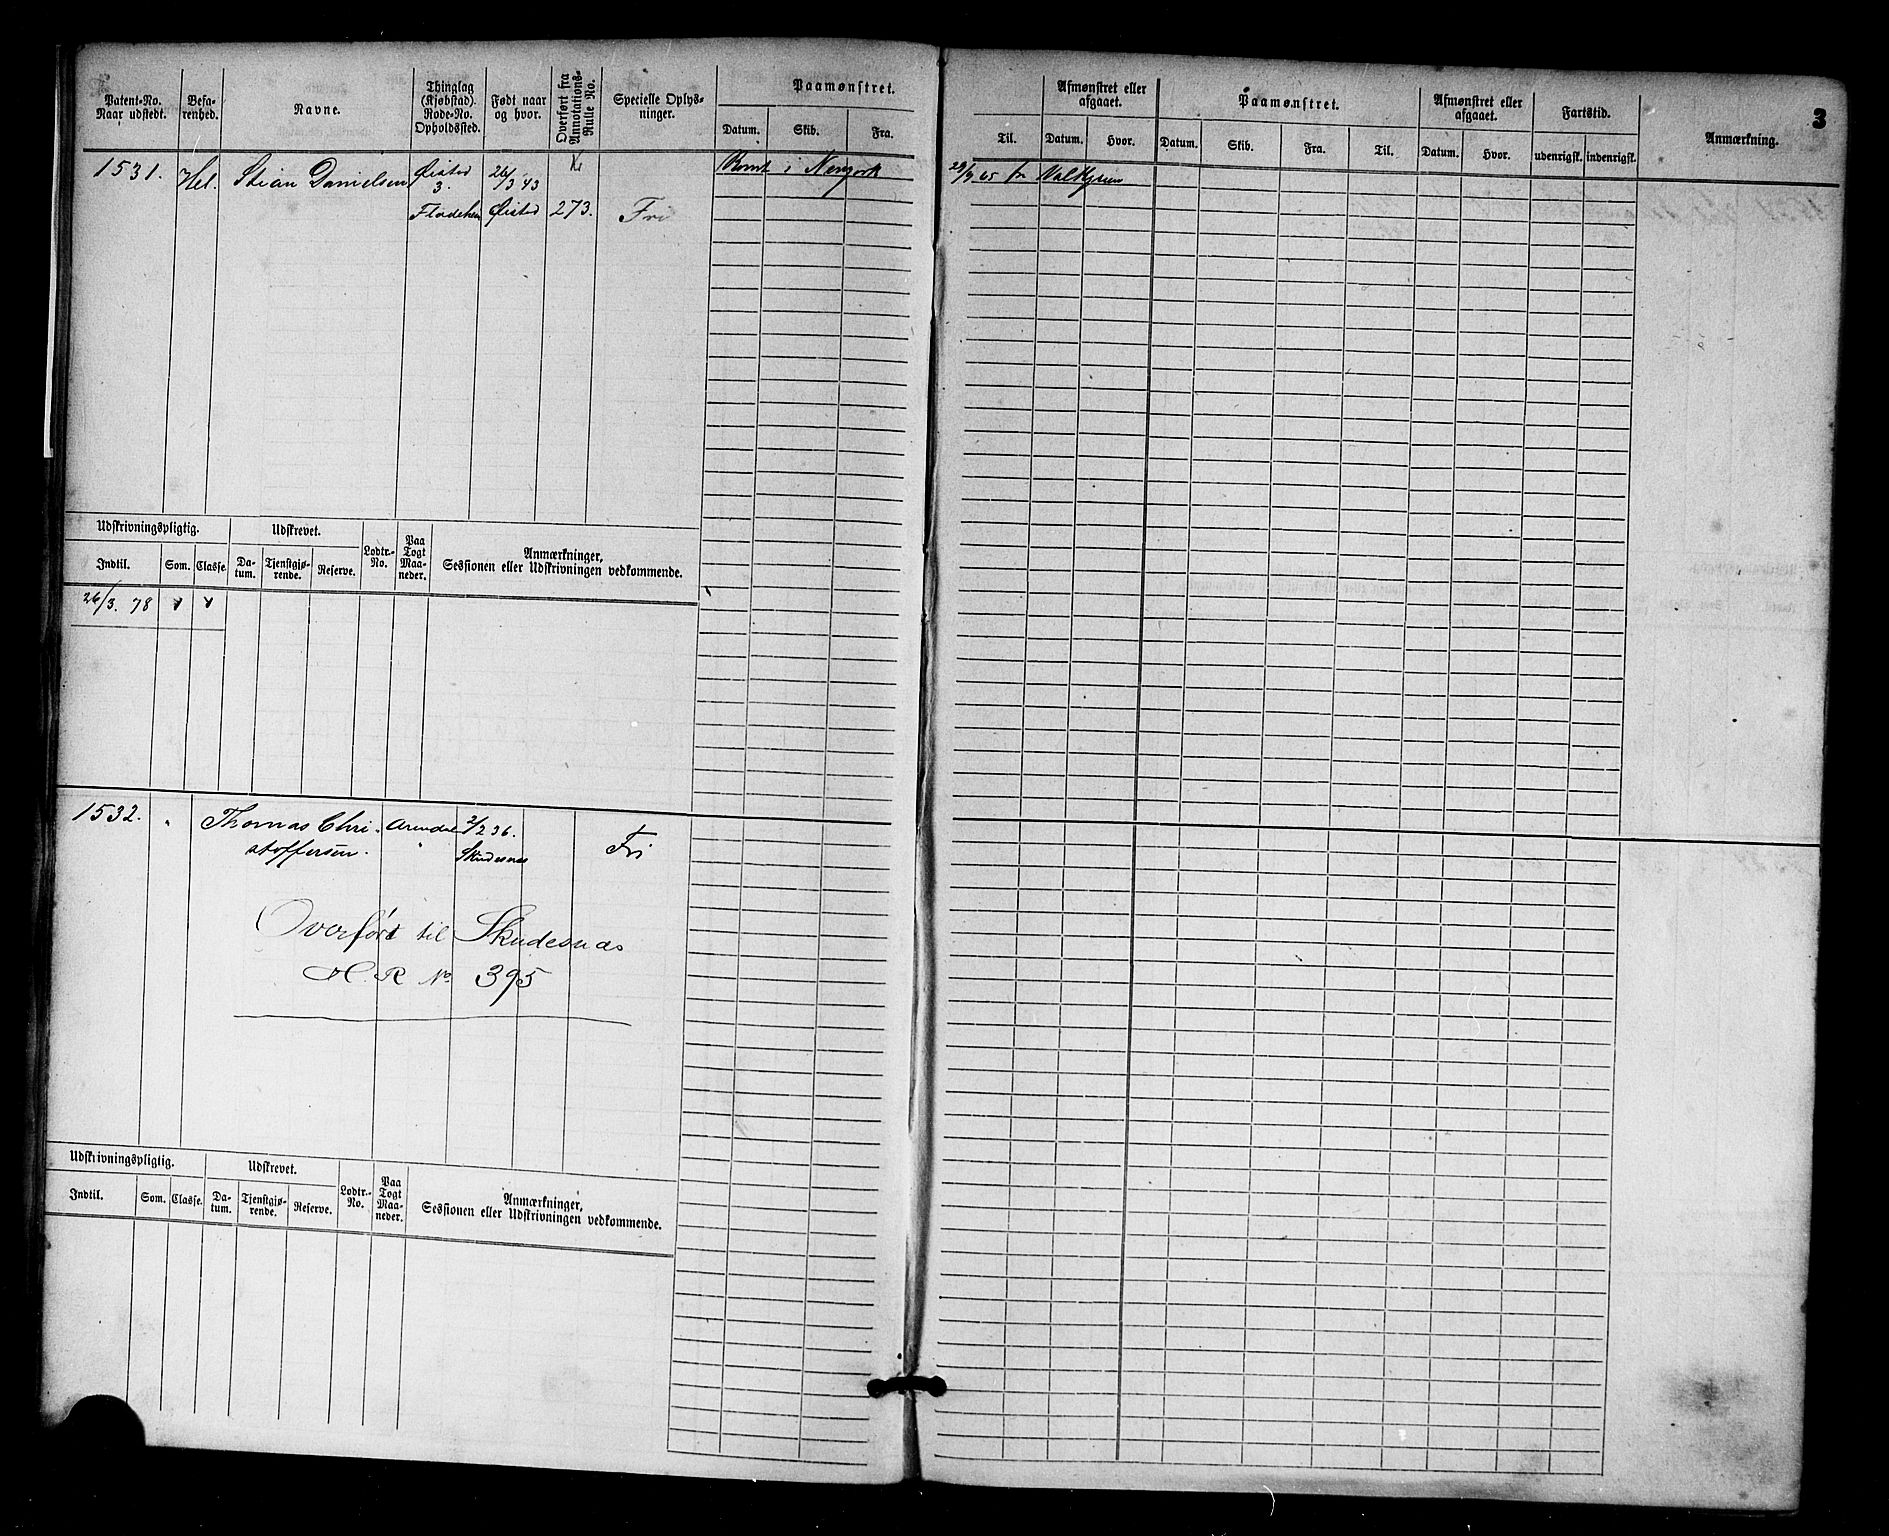 3
Patent-No. Naar udstedt.
Befarenhed.
Navne.
Thinglag (Kjøbstad). Rode-No. Opholdssted.
Født naar og hvor.
Overført fra Annotations-Rulle No.
Specielle Oplysninger.
Paamønstret.
Datum. Skib. Fra. Til.
Afmønstret eller afgaaet.
Datum. Hvor.
Paamønstret.
Datum. Skib. Fra. Til.
Afmønstret eller afgaaet.
Datum. Hvor.
Fartstid.
udenrigsk. indenrigsk.
Anmærkning.
1531. Hel. Stian Danielsen Øisted 26/3 43
3.
Øisted 273. Fri
Rømt i Newyork
Udskrivningspligtig. Udskrevet. Lodtr.-No. Paa Togt Maaneder. Anmærkninger,
Sessionen eller Udskrivningen vedkommende.
Indtil. Som. Classe. Datum. Tjenstgjørende. Reserve.
26/3. 78
1532. " Thomas Chri- Arendal 2/2 36. Fri
stoffersen. " Skudesnæs
Overført til Skudesnæs
H. R No. 395
Udskrivningspligtig. Udskrevet. Lodtr.-No. Paa Togt Maaneder. Anmærkninger,
Sessionen eller Udskrivningen vedkommende.
Indtil. Som. Classe. Datum. Tjenstgjørende. Reserve.